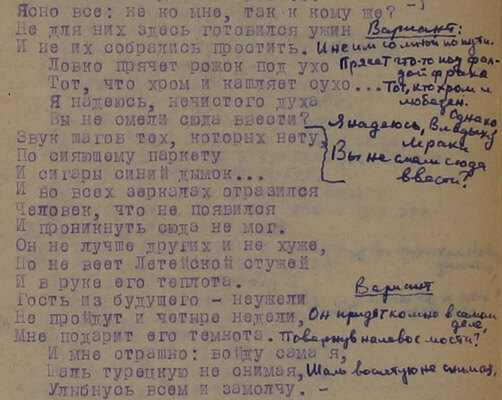 Ясно все: не ко мне, так к кому же?
Не для них здесь готовился ужин
И не их собрались простить.
Ловко прячет рожок под ухо
Тот, что хром и кашляет сухо...
Я надеюсь, нечистого духа
Вы не смели сюда ввести?
Звук шагов тех, которых нету,
По сияющему паркету
И сигары синий дымок...
И во всех зеркалах отразился
Человек, что не появился
И проникнуть сюда не мог.
Он не лучше других и не хуже,
Но не веет Летейской стужей
И в руке его теплота.
Гость из будущего - неужели
Не пройдут и четыре недели,
Мне подарит его темнота.
И мне страшно: войду сама я,
Шаль турецкую не снимая,
Улыбнусь всем и замолчу. -
Вариант:
И не им со мною по пути.
Прячет что-то под фал-
дой фрака
Тот, кто хром и
любезен.
Однако,
Я надеюсь, Владыку
Мрака
Вы не смели сюда
ввести?
Вариант
Он придет ко мне в самом
деле,
Повернув налево с моста?
Шаль воспетую не снимая,